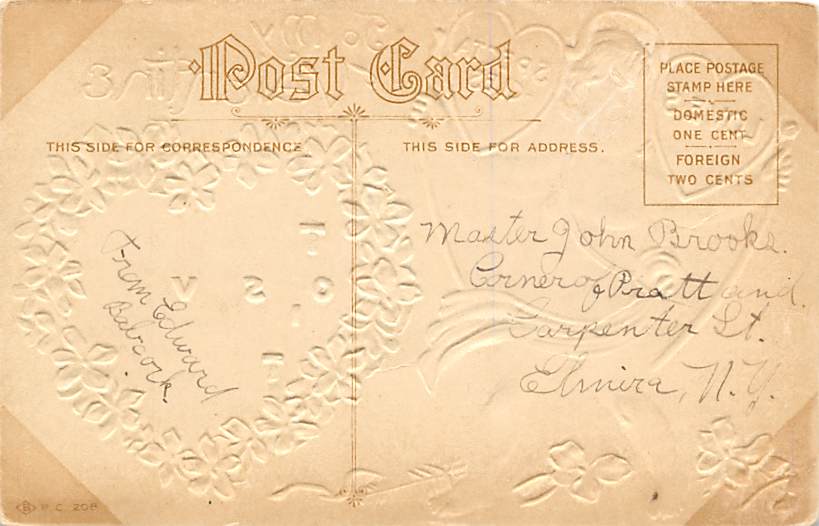 Post Card
PLACE POSTAGE
STAMP HERE
DOMESTIC
ONE CENT
FOREIGN
TWO CENTS
THIS SIDE FOR CORRESPONDENCE
THIS SIDE FOR ADDRESS.
From Edward
Babcock.
Master John Brooks.
Corner of Pratt and.
Carpenter St.
Elmira, N.Y.
B P.C. 208